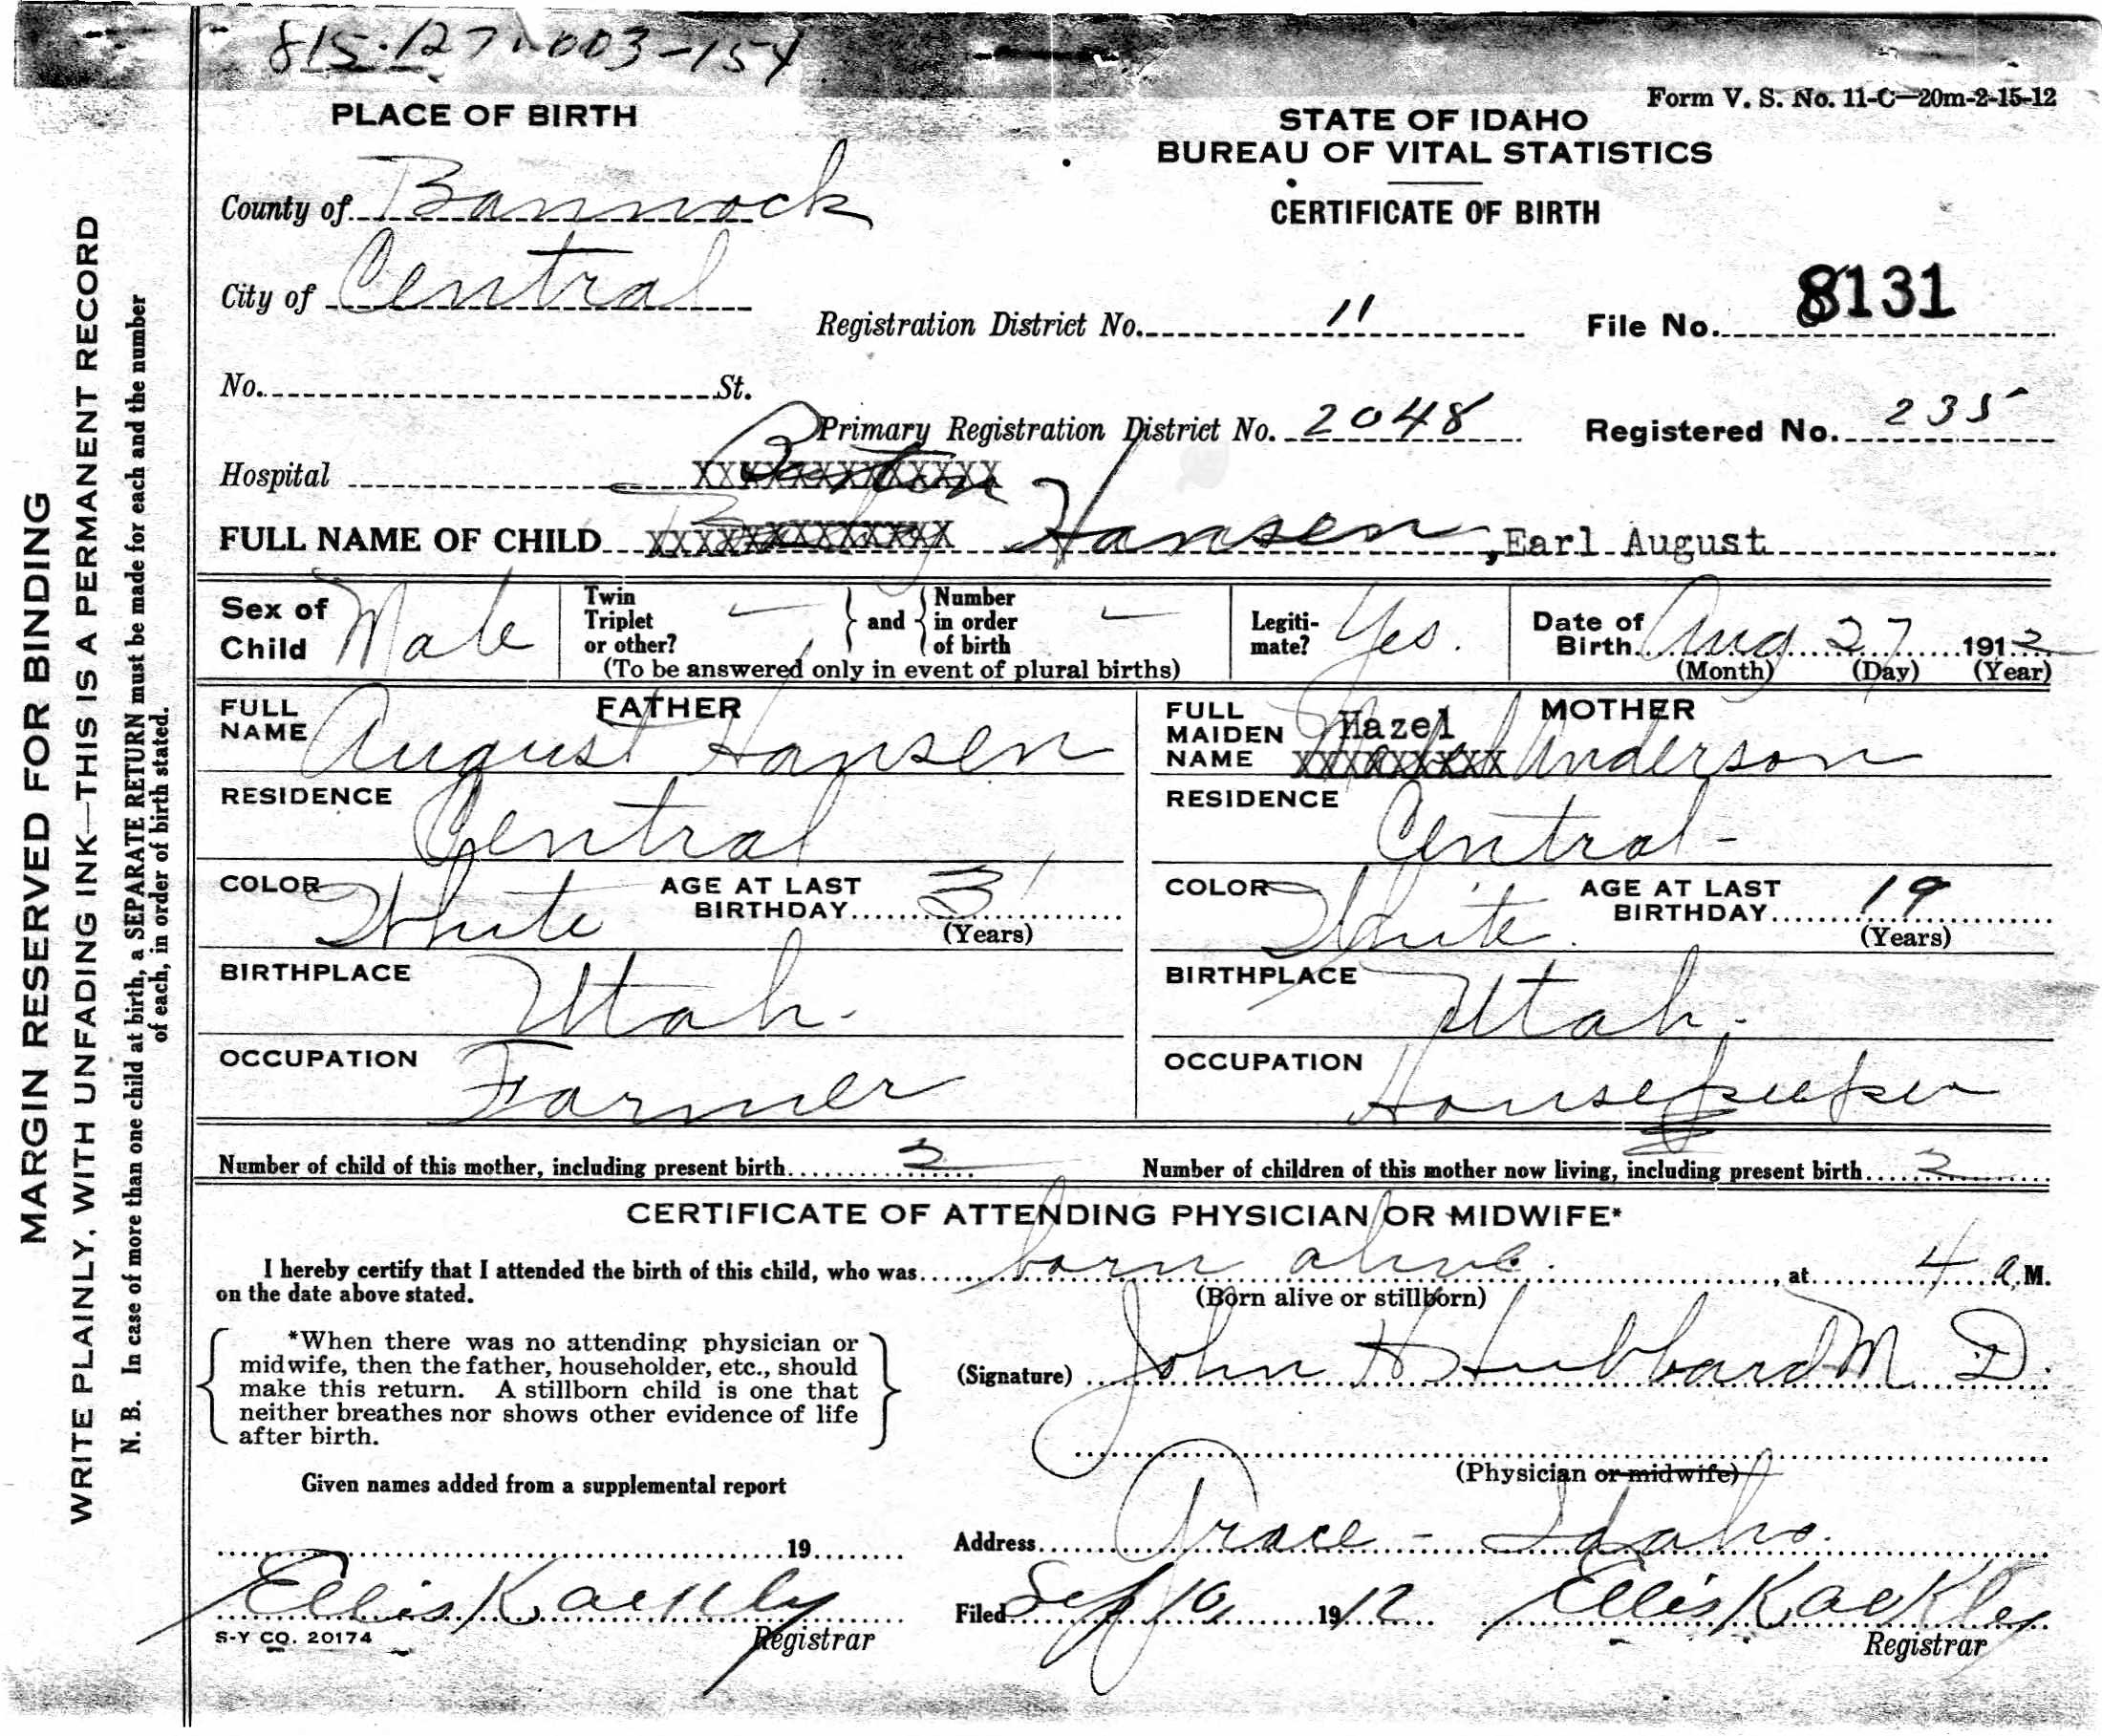 815-127-003-154
Form V. S. No. 11-C—20m-2-15-12
PLACE OF BIRTH
STATE OF IDAHO
BUREAU OF VITAL STATISTICS
CERTIFICATE OF BIRTH
County of Bannock
City of Central
Registration District No. 11
File No. 8131
No. St.
Primary Registration District No. 2048
Registered No. 235
Hospital
FULL NAME OF CHILD Hansen, Earl August
Sex of Child Male
Twin Triplet or other? - and Number in order of birth -
(To be answered only in event of plural births)
Legitimate? Yes.
Date of Birth Aug 27 1912
(Month) (Day) (Year)
FATHER
FULL NAME August Hansen
RESIDENCE Central
COLOR White AGE AT LAST BIRTHDAY 31
(Years)
BIRTHPLACE Utah.
OCCUPATION Farmer
MOTHER
FULL MAIDEN NAME Hazel Anderson
RESIDENCE Central -
COLOR White. AGE AT LAST BIRTHDAY 19
(Years)
BIRTHPLACE Utah.
OCCUPATION Housekeeper
Number of child of this mother, including present birth 2
Number of children of this mother now living, including present birth 2
CERTIFICATE OF ATTENDING PHYSICIAN OR MIDWIFE*
I hereby certify that I attended the birth of this child, who was born alive., at 4 a.M.
on the date above stated.
(Born alive or stillborn)
*When there was no attending physician or
midwife, then the father, householder, etc., should
make this return. A stillborn child is one that
neither breathes nor shows other evidence of life
after birth.
(Signature) John H Hubbard M D.
(Physician or midwife)
Given names added from a supplemental report
19
Address Grace - Idaho.
Ellis Kackley
Registrar
Filed Sep 10, 1912 Ellis Kackley
Registrar
S-Y CO. 20174
MARGIN RESERVED FOR BINDING
WRITE PLAINLY, WITH UNFADING INK—THIS IS A PERMANENT RECORD
N. B. In case of more than one child at birth, a SEPARATE RETURN must be made for each and the number
of each, in order of birth stated.